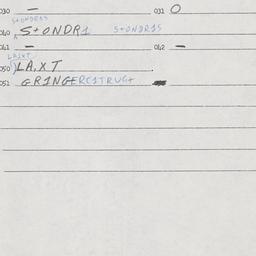 030 — 031 O
S+ONDR1S
040 S+ONDR1 S+ONDR1S
041 — 042 —
LA1XT
050 )LA,XT
051 GR1NGERC1TRUG+